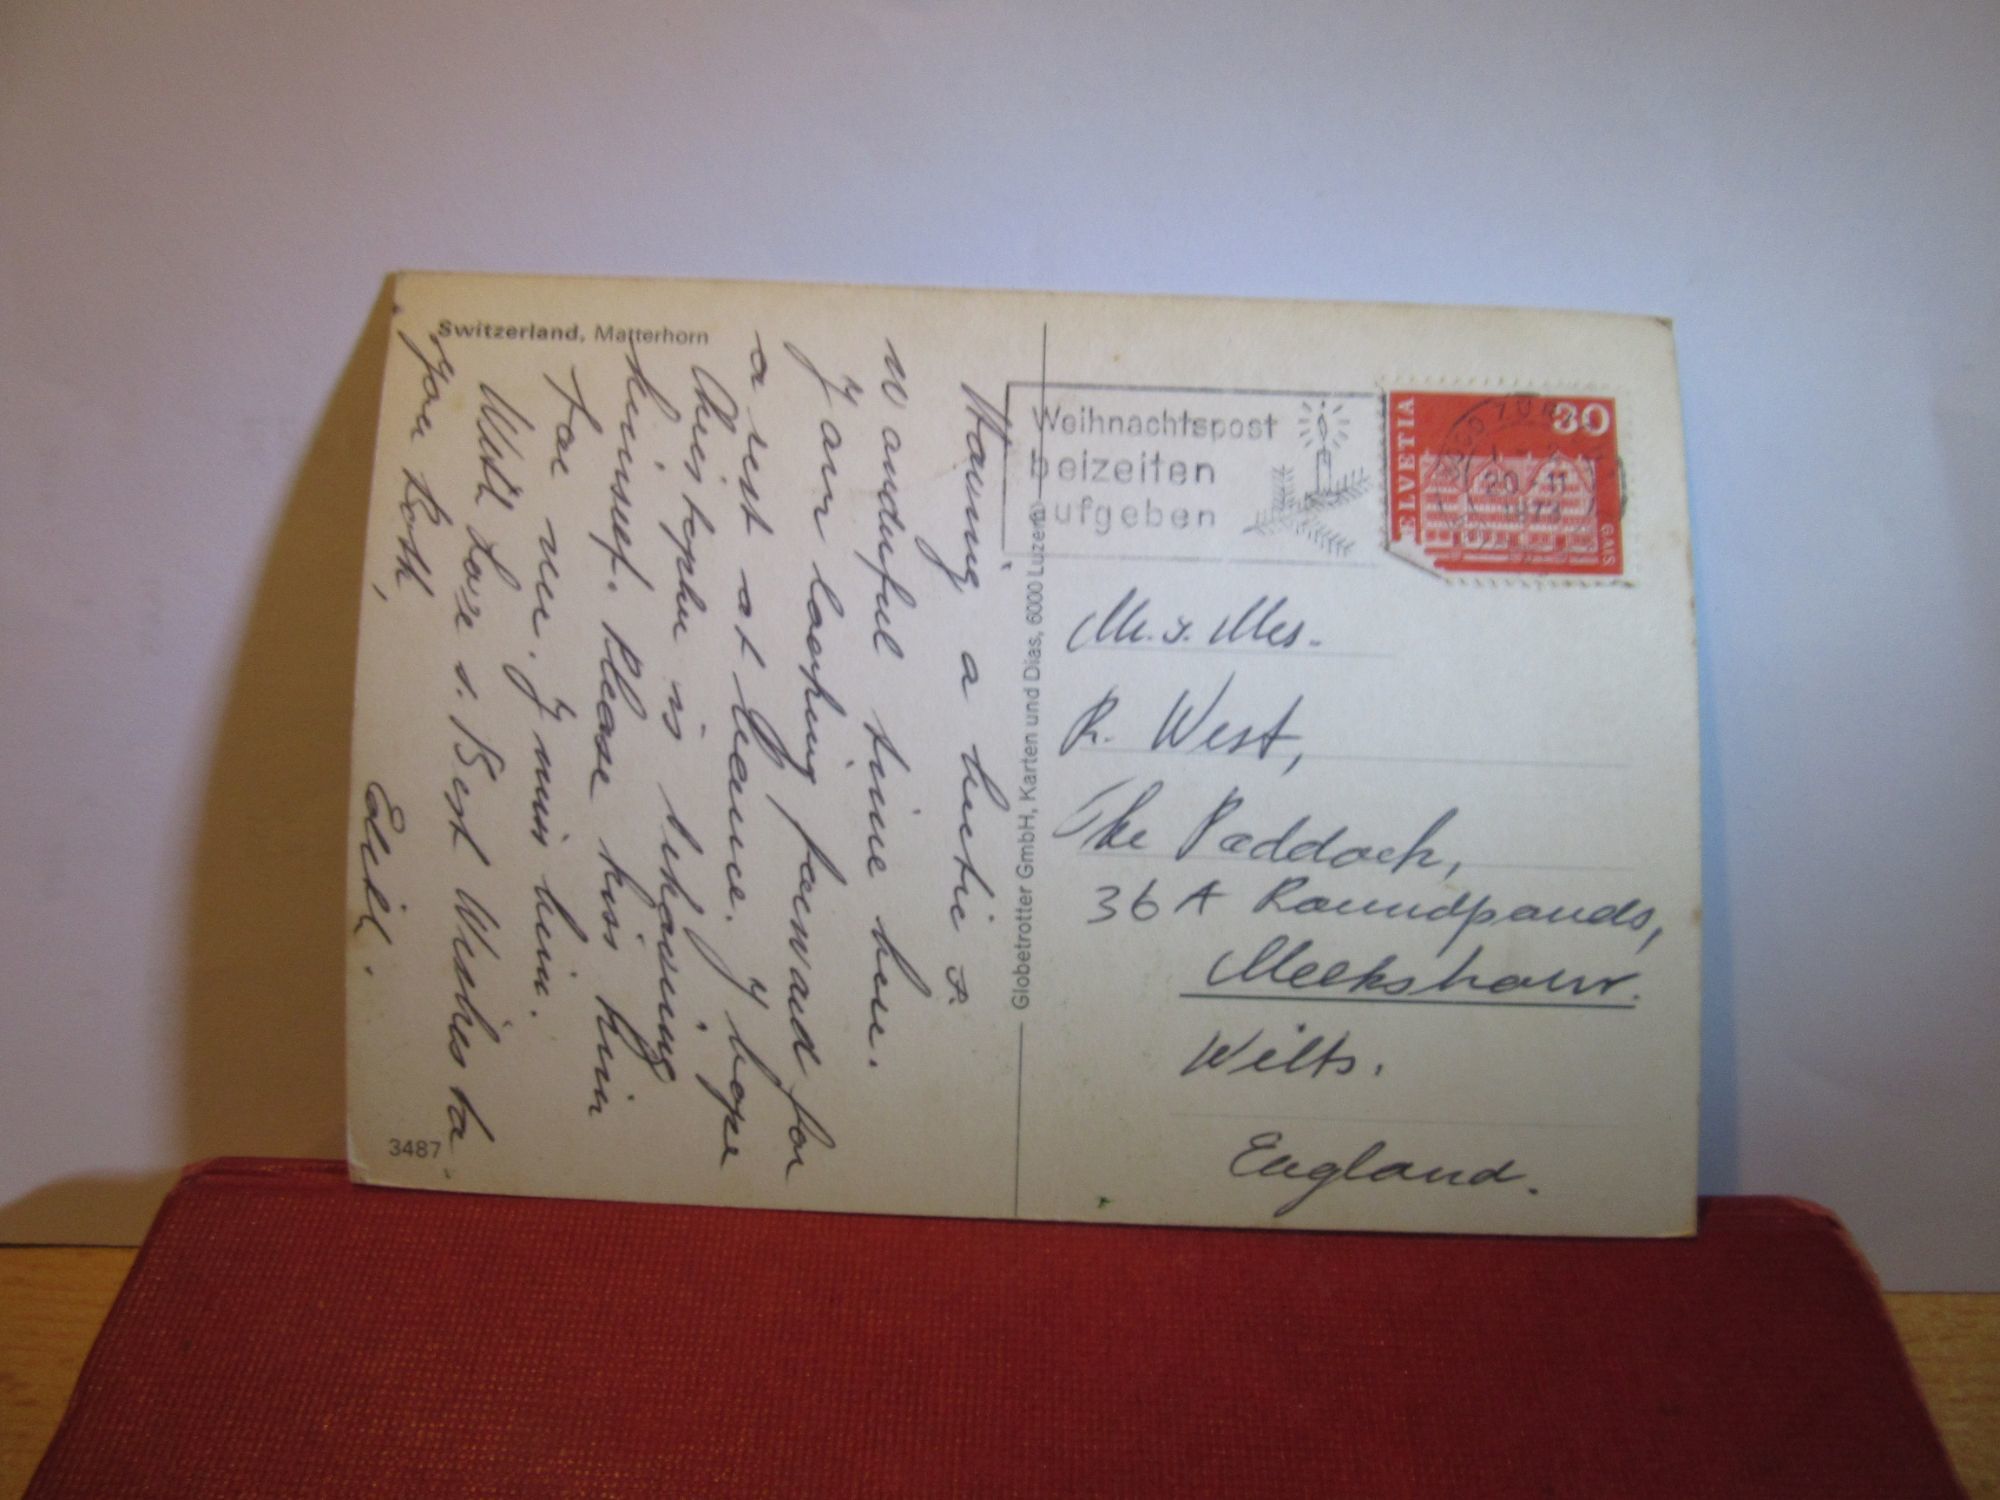 Switzerland, Matterhorn
Having a hectic &
wonderful time here.
I am looking forward for
a rest at home. I hope
Christopher is behaving
himself. Please kiss him
for me. I miss him.
With Love & Best Wishes to
you both,
3487
Globetrotter GmbH, Karten und Dias, 6000 Luzern
Weihnachtspost
beizeiten
aufgeben
HELVETIA
30
GAIS
20-11
Mr. & Mrs.
R. West,
The Paddock,
36A Roundponds,
Melksham.
Wilts.
England.